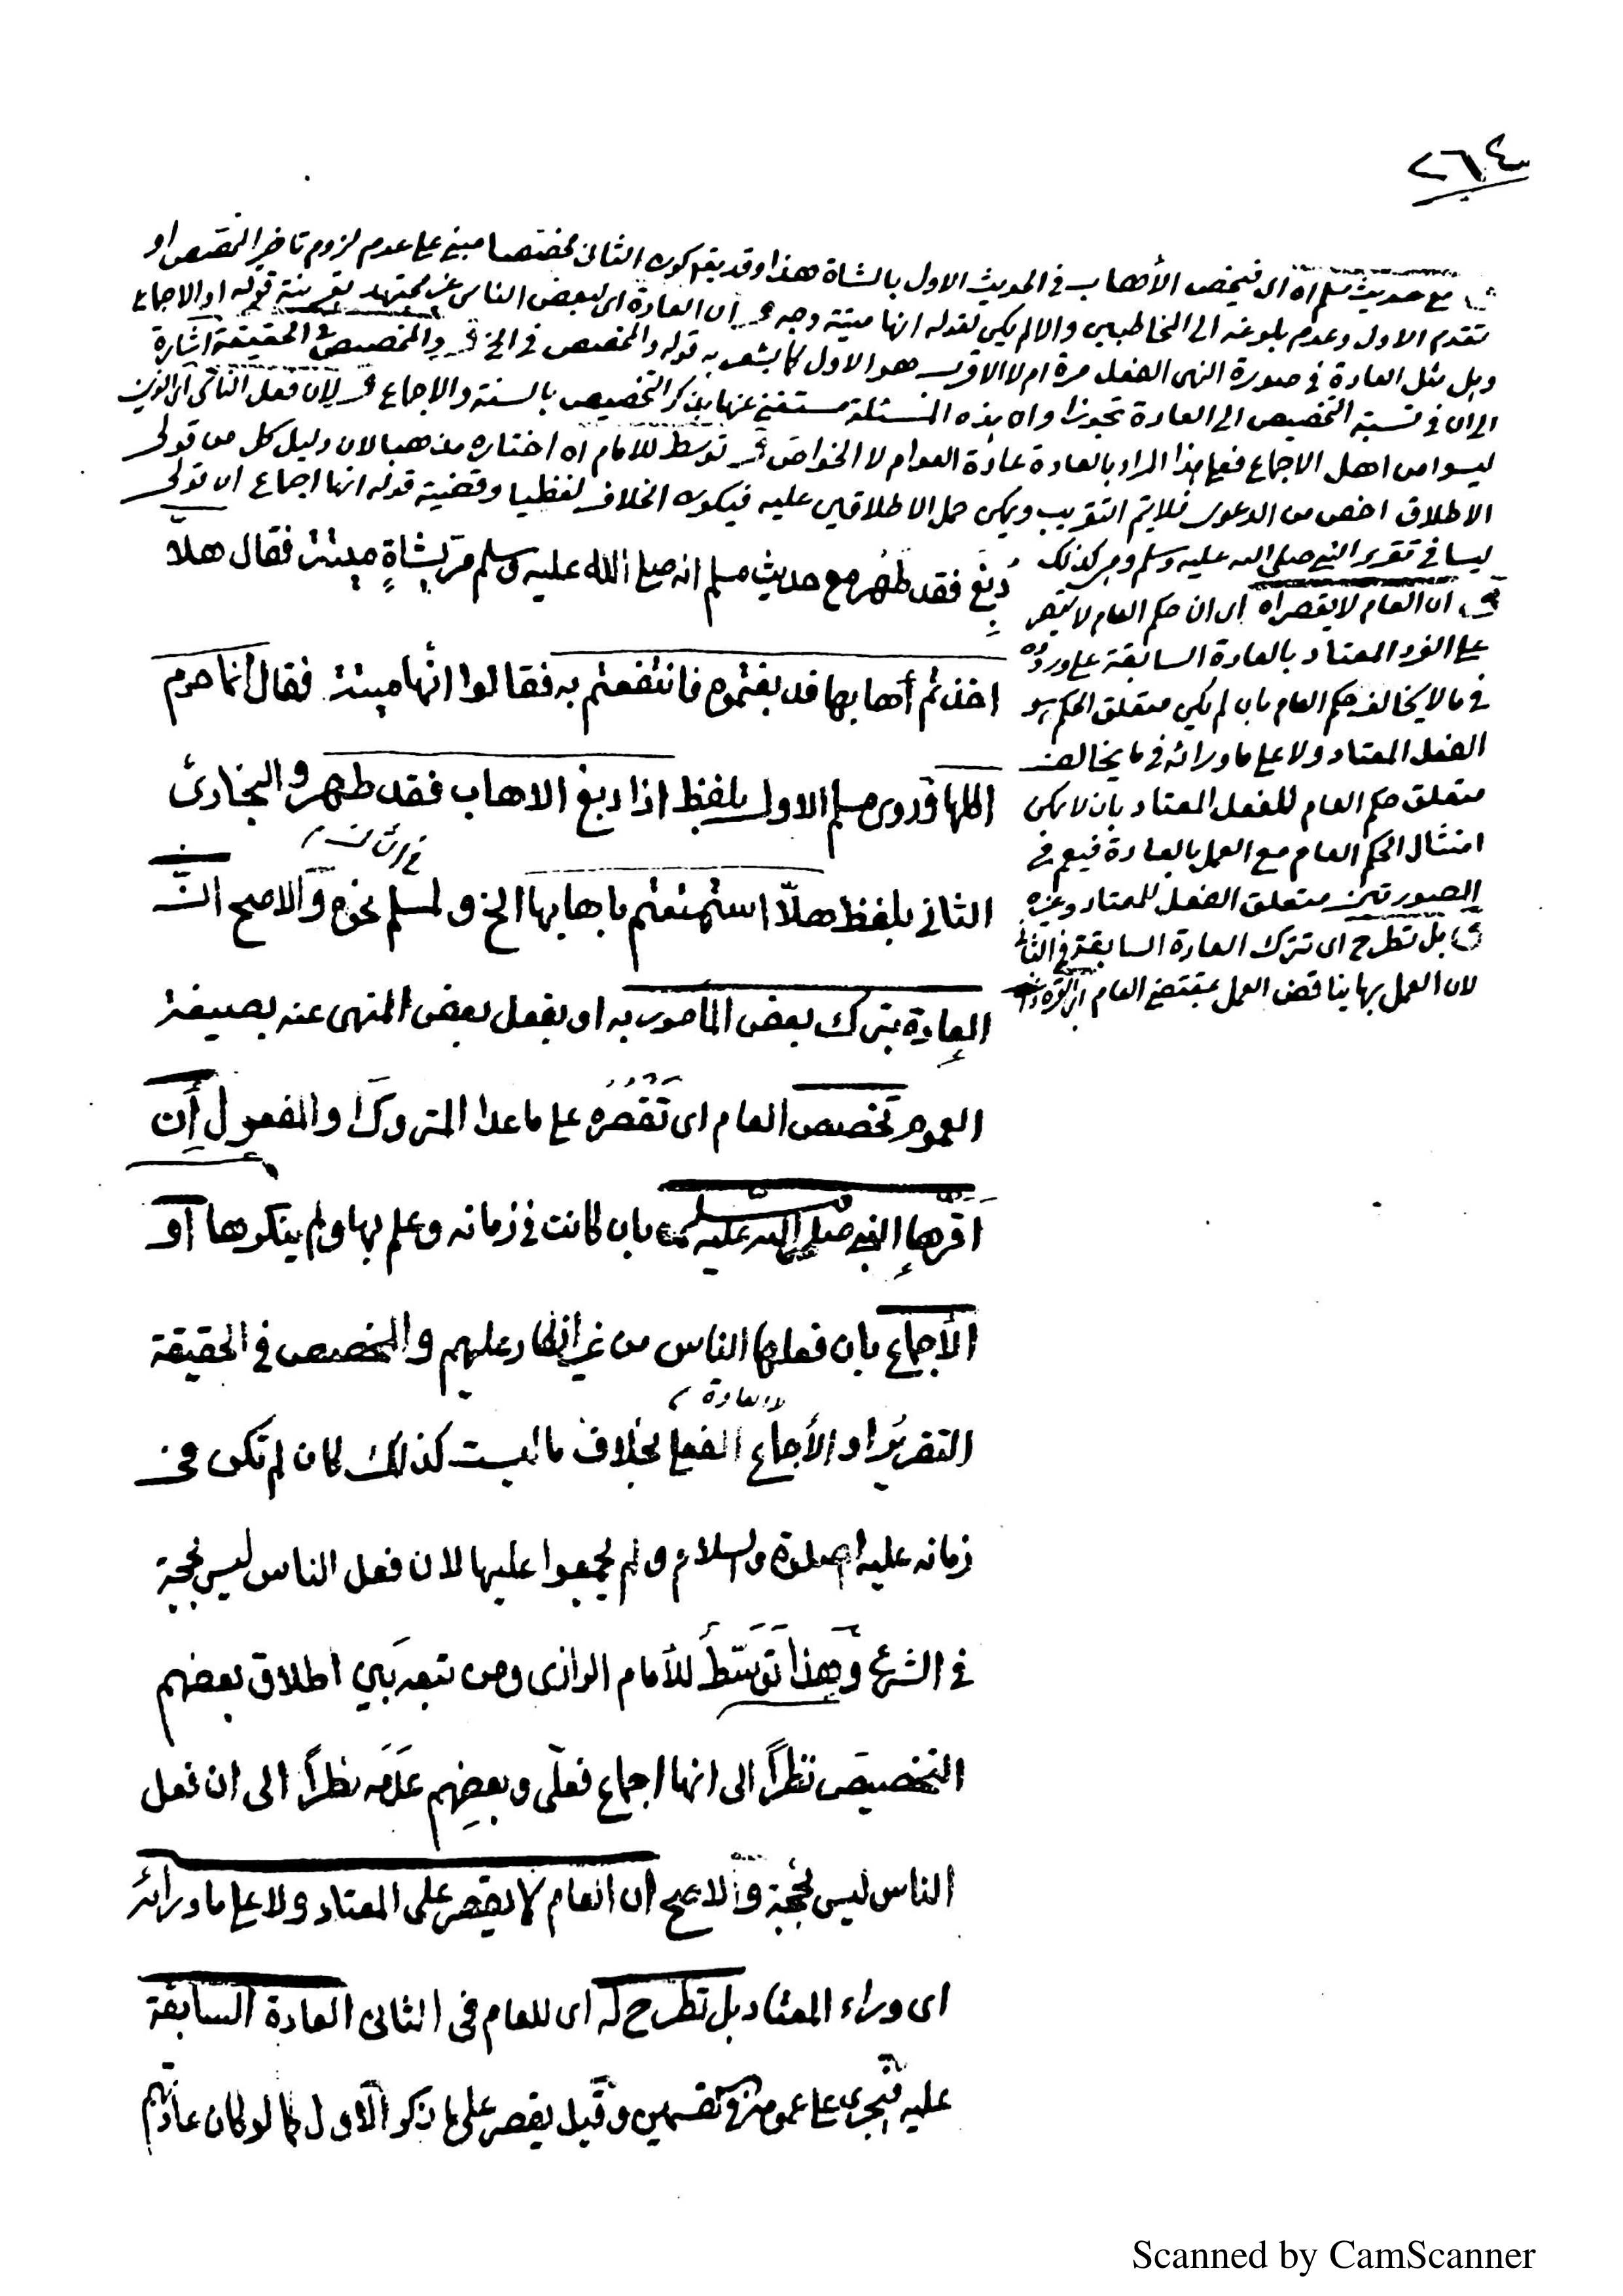 ٢٦٤
مع حديث مسلم اه اى فيخص الأهاب في الحديث الاول بالشاة هذا وقد يقع كون الثانى مخصصا مبنى على عدم لزوم تاخير المخصص او
تقدم الاول وعدم بلوغه الى المخاطبين والا لم يكن لقوله انها ميتة وجه ان العادة اى لبعض الناس غير مجتهد بقرينة قوله او الاجماع
وهل مثل العادة في صورة النهى الفعل مرة ام لا الاقرب هو الاول كما يشعر به قوله والمخصص في الخ والمخصص في الحقيقة اشارة
الى ان في نسبة التخصيص الى العادة تجوزا وان هذه المسئلة مستغنى عنها بذكر التخصيص بالسنة والاجماع لان فعل الناس اى الذين
ليسوا من اهل الاجماع فعلى هذا المراد بالعادة عادة العوام لا الخواص توسط للامام اه اختاره مذهبا لان دليل كل من قولى
الاطلاق اخص من الدعوى فلا يتم التقريب ويمكن حمل الاطلاقين عليه فيكون الخلاف لفظيا وقضية قوله انها اجماع ان قولى
ليسا في تقرير النبي صلى الله عليه وسلم وهو كذلك
ان العام لا يقصر اه اى ان حكم العام لا يقصر
على الفرد المعتاد بالعادة السابقة على وروده
في ما لا يخالف حكم العام بان لم يكن متعلق الحكم هو
الفعل المعتاد ولا على ما ورائه في ما يخالف
متعلق حكم العام للفعل المعتاد بان لا يمكن
امتثال الحكم العام مع العمل بالعادة فيعم في
الصورتين متعلق الفعل المعتاد وغيره
بل تطرح اى تترك العادة السابقة في الثانى
لان العمل بها يناقض العمل بمقتضى العام
دُبِغَ فقد طَهُر مع حديث مسلم انه صلى الله عليه وسلم مرّ بشاةٍ ميتة فقال هلاّ
اخذتم أهابها فدبغتموه فانتفعتم به فقالوا انّها ميتة فقال أنما حرم
اكلها وروى مسلم الاول بلفظ اذا دبغ الاهاب فقد طهر والبخارى
الثانى بلفظ هلاّ استمتعتم باهابها الخ ولمسلم نحوه والاصح انّ
العادة بترك بعض المأمور به او بفعل بعض المنهى عنه بصيغة
العموم تخصص العام اى تَقْصُرُه على ما عدا المتروك او المفعول أن
اقرّها النبى صلى الله عليه وسلم بان كانت في زمانه وعلم بها ولم ينكرها او
الأجماع بان فعلها الناس من غير انكار عليهم والمخصص في الحقيقة
لا العادة
التقرير او الأجماع الفعلى بخلاف ما ليست كذلك كان لم تكن في
زمانه عليه الصلوة والسلام ولم يجمعوا عليها لان فعل الناس ليس بحجة
في الشرع وهذا تَوَسّطٌ للأمام الرازى ومن تبعه بَين اطلاق بعضهم
التخصيص نظراً الى انها اجماع فعلى وبعضِهم عدَمَه نظراً الى ان فعل
الناس ليس بحجة والاصح ان العام لا يقصر على المعتاد ولا على ما ورائه
اى وراء المعتاد بل تطرح له اى للعام في الثانى العادة السابقة
عليه فيجرى على عمومه في القسمين وقيل يقصر على ما ذكر الاول كما لو كان عادتهم
Scanned by CamScanner